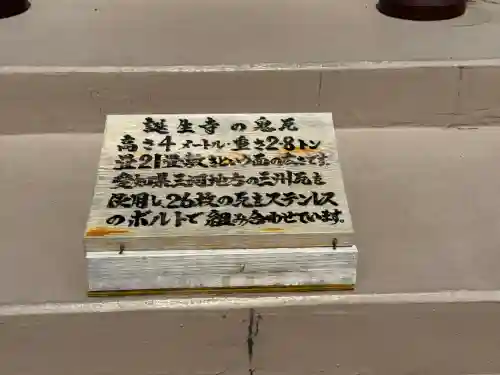 誕生寺の鬼瓦
高さ4メートル・重さ2.8トン
畳21畳敷きという面の広さです。
愛知県三河地方の三州瓦を
使用し、26枚の瓦をステンレス
のボルトで組み合わせています。